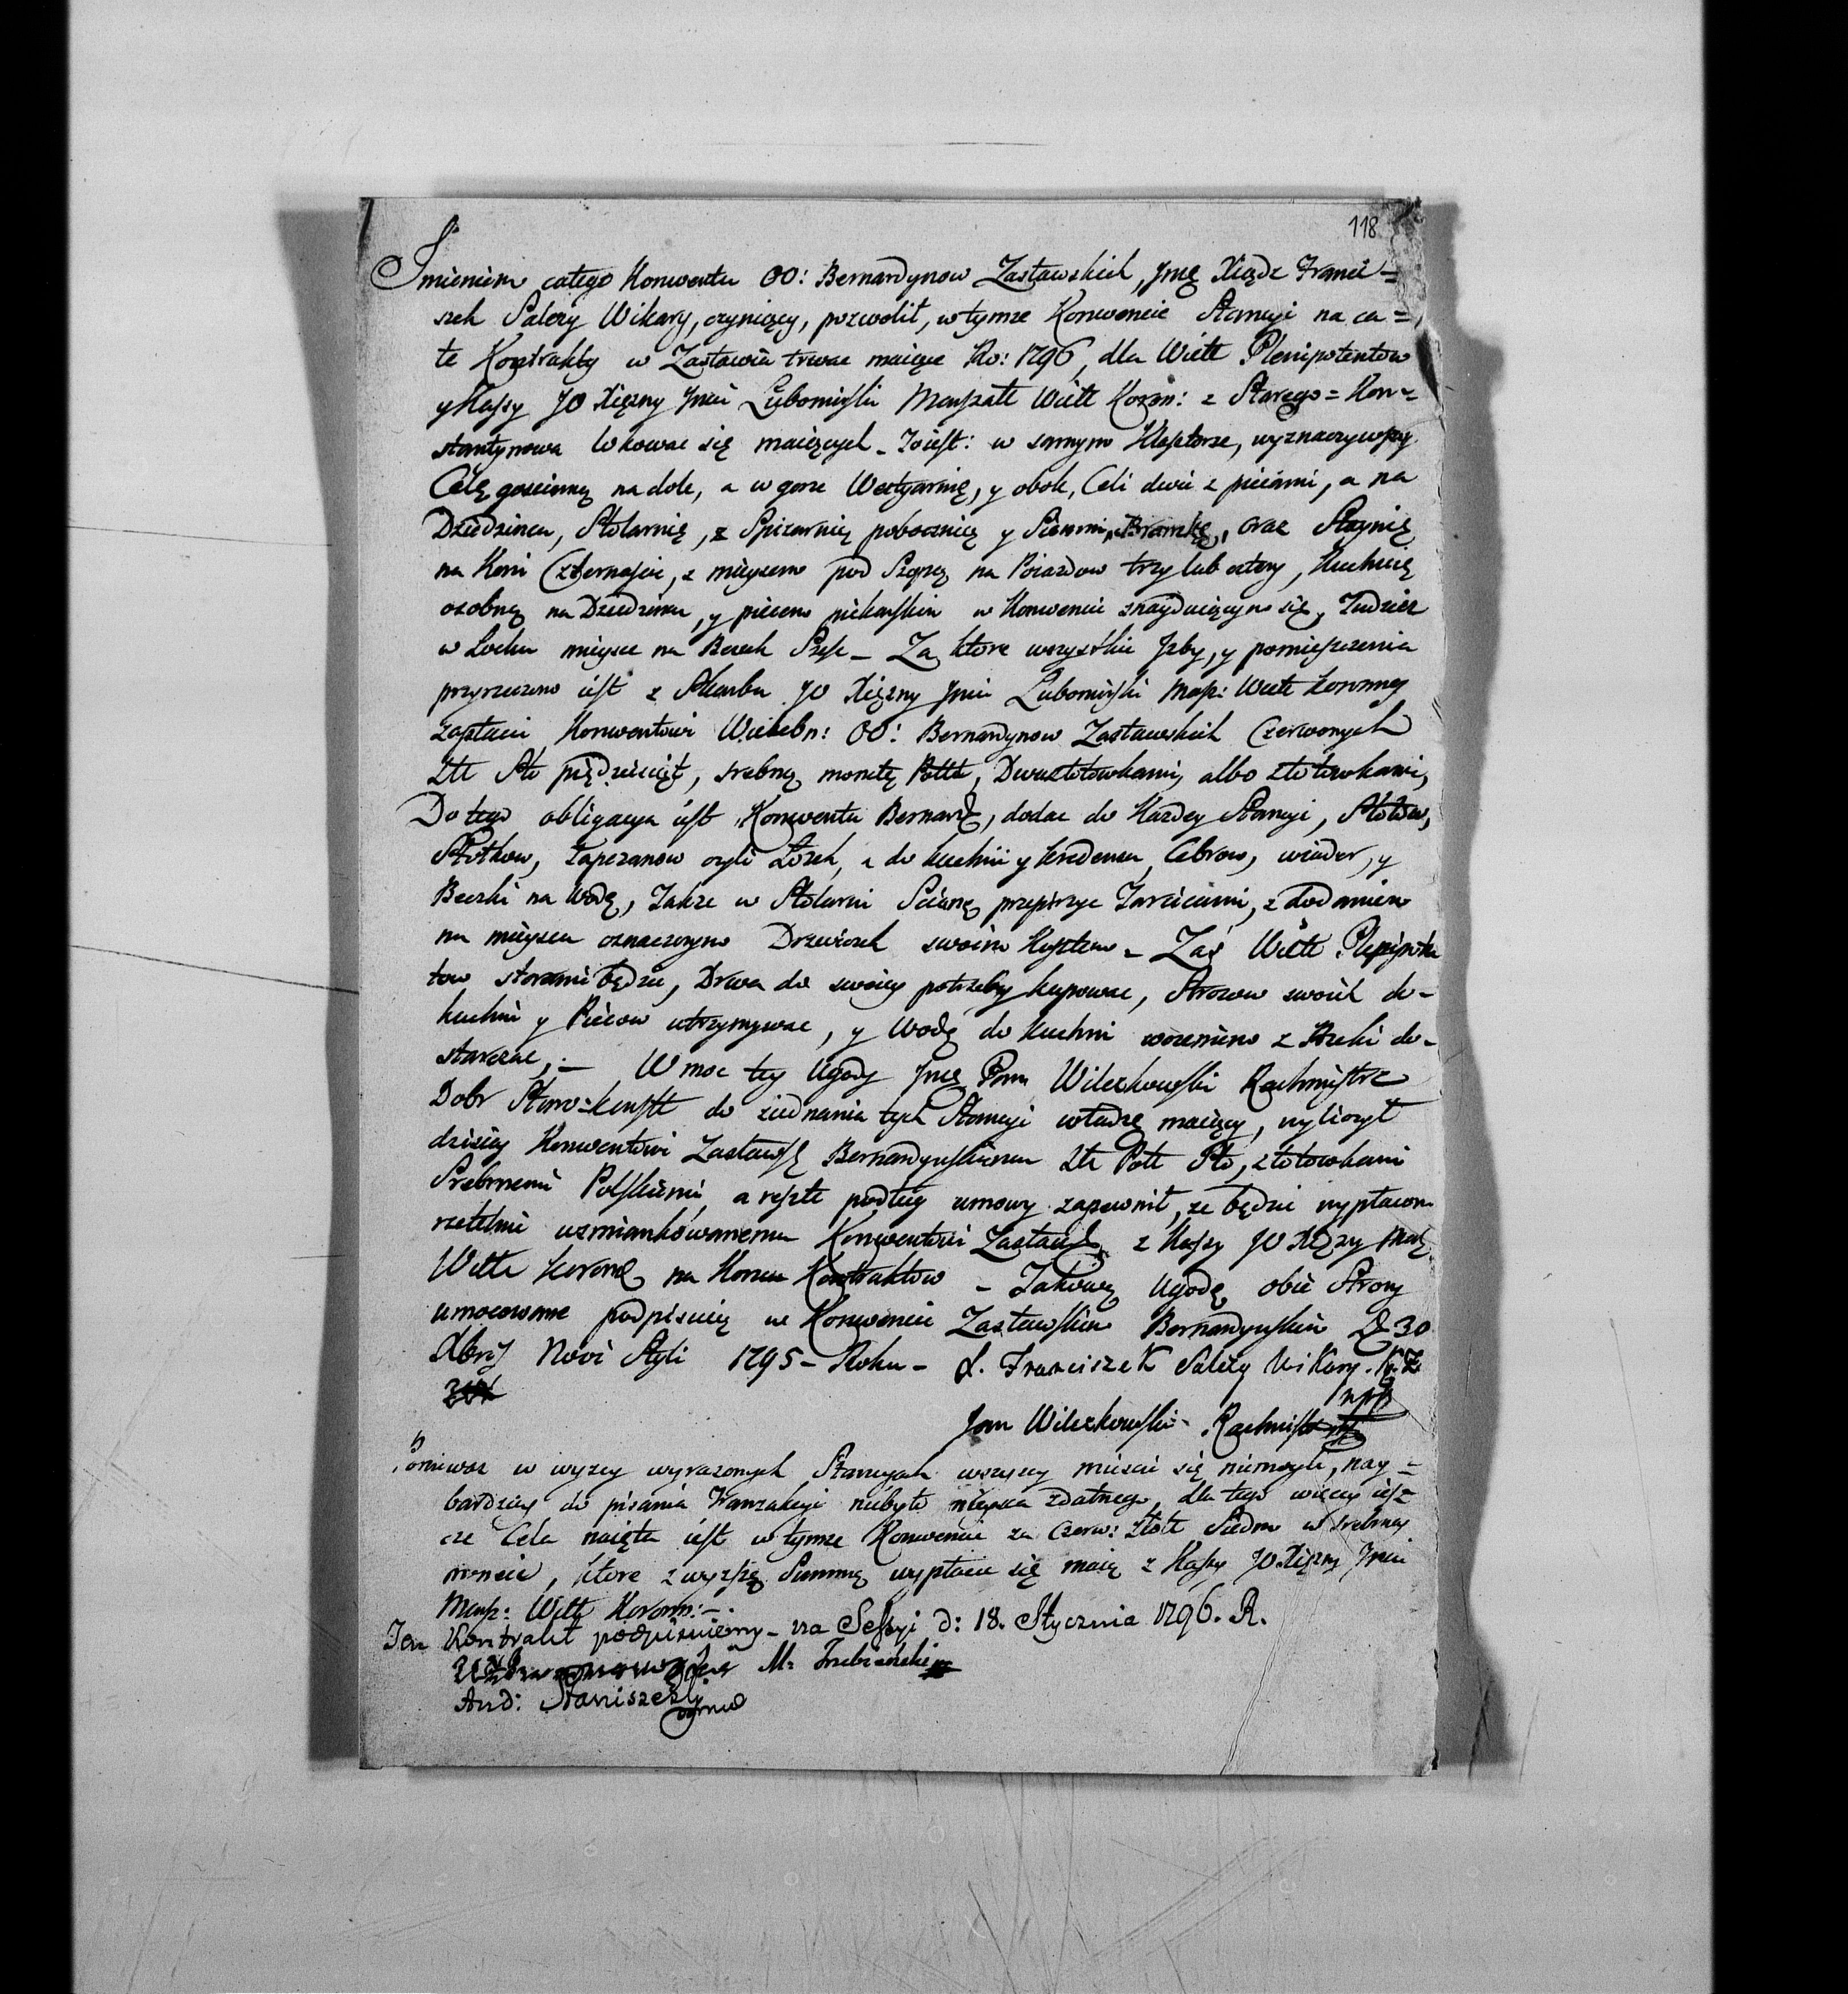 118
Jmieniem całego Konwentu OO: Bernardynow Zasławskich, Jmę Xiądz Franci=
szek Salezy Wikary, czyniący, pozwolił, w tymze Konwencie Stancyi na ca=
łe Kontrakty w Zasławiu trwac maiące Ro: 1796, dla Wiel Plenipotentow
y Kassy JO Xiężny Jmci Lubomirski Marszałk Wielk Koron: z Starego=Kon=
stantynowa lokowac się maiących - To iest: w samym Klasztorze, wyznaczywszy
Celę goscinną na dole, a w gorze Westyarnię, y obok, Celi dwie z piecami, a na
Dziedzincu, Stolarnię, z Spizarnią poboczną y Sienmi, Bramkę, oraz Staynię
na Koni Czternascie, z mieyscem pod Szopą na Poiazdow trzy lub cztery, Kuchnię
osobną na Dziedzincu, y piecem piekarskim w Konwencie znayduiącym się, Tudziez
w Lochu mieysce na Beczek Szesc - Za ktore wszystkie Jzby, y pomieszczenia
przyrzeczono iest z Skarbu JO Xiężny Jmci Lubomirski Marsz: Wielk koronney
zapłacic Konwentowi Wielebn: OO: Bernardynow Zasławskich Czerwonych
Złł Sto pięcdziesiąt, srebrną monetą Polską, Dwuzłotowkami, albo złotowkami,
Do tego obligacya iest Konwentu Bernard, dodac do Kazdey Stancyi, Stołow,
Stołkow, Tapczanow czyli Łozek, a do kuchni y kredensu, Cebrow, wiader, y
Beczki na Wodę, Takze w Stolarni Scianę przepierzyc Tarcicami, z dodaniem
na mieyscu oznaczonym Drzwiczek swoim kosztem - Zaś Wielk Plenipoten
tow staraniem będzie, Drwa do swoiey potrzeby kupowac, Strozow swoich do-
kuchni y Piecow utrzymywac, y Wodę do kuchni wozeniem z Rzeki do-
starczac; - W moc tey Ugody Jmę Pan Wilczkowski Rachmistrz
Dobr Staro=konstt do ziednania tych Stancyi władzę maiący, wyliczył
dzisiay Konwentowi Zasławs Bernardynskiemu Złł Poll Sto, złotowkami
Srebrnemi Polskiemi, a resztę podług umowy zapewnił, ze będzie wypłacon
rzetelnie wzmiankowanemu Konwentowi Zasław z Kassy JO Xiężny Marsz
Wielk koron na Koncu Kontraktow - Takową Ugodę obie Strony
umocowane podpisuią w Konwencie Zasławskim Bernardynskim D 30
Xbris Novi Styli 1795 - Roku - X. Franciszek Salezy Wikary. K. Z
mpp
Jan Wilczkowski - Rachmistrz
Poniewaz w wyzey wyrazonych Stancyach wszyscy miescic się niemogli, nay=
bardziey do pisania Tranzakcyi niebyło mieysca zdatnego, dla tego więcey iesz=
cze Cela naięta iest w tymze Konwencie za Czerw: Złote Siedm w srebrney
monecie, ktore z wyzszą Summą wypłacic się maią z Kassy JO Xiężny Jmci
Marsz: Wielk Koronn: -
Ten Kontrakt podpisuiemy - na Sessyi d: 18. Stycznia 1796. R.
M. Trebinski
And: Staniszewski